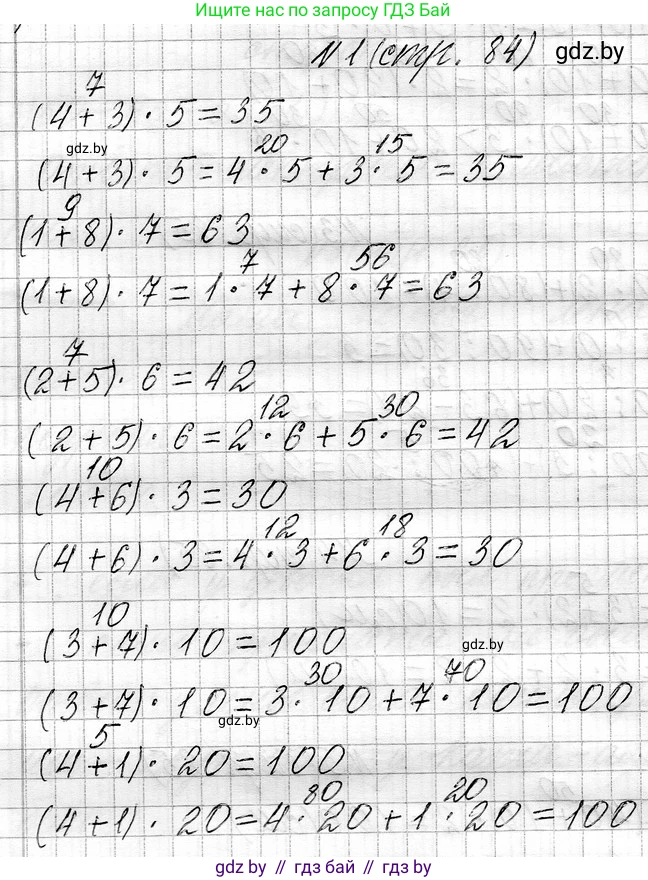 Ищите нас по запросу ГДЗ Бай
№1 (стр. 84) gdz.by
7
(4 + 3) · 5 = 35
gdz.by 20 15
(4 + 3) · 5 = 4 · 5 + 3 · 5 = 35
9
(1 + 8) · 7 = 63
7 56
(1 + 8) · 7 = 1 · 7 + 8 · 7 = 63
7
(2 + 5) · 6 = 42
12 30
(2 + 5) · 6 = 2 · 6 + 5 · 6 = 42
10
(4 + 6) · 3 = 30
12 18
(4 + 6) · 3 = 4 · 3 + 6 · 3 = 30
10
(3 + 7) · 10 = 100
gdz.by
30 70
(3 + 7) · 10 = 3 · 10 + 7 · 10 = 100
gdz.by
5
(4 + 1) · 20 = 100
80 20
(4 + 1) · 20 = 4 · 20 + 1 · 20 = 100
gdz.by // гдз бай // gdz.by